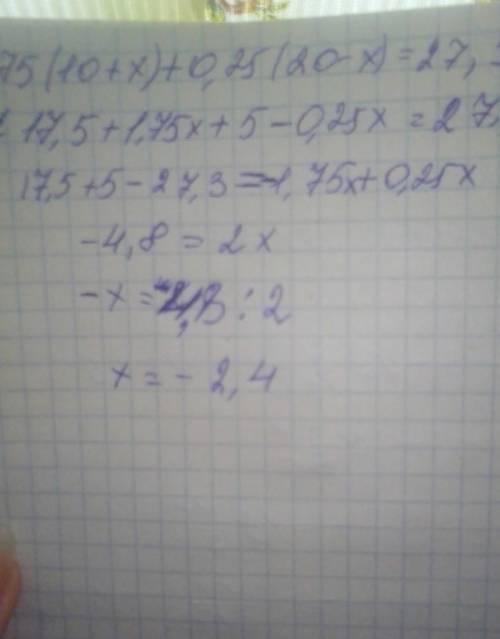 75(10+x)+0,25(20-x)=27,3
17,5+1,75x+5-0,25x=27,
17,5+5-27,3=-1,75x+0,25x
-4,8=2x
-x= :2
x=-2,4